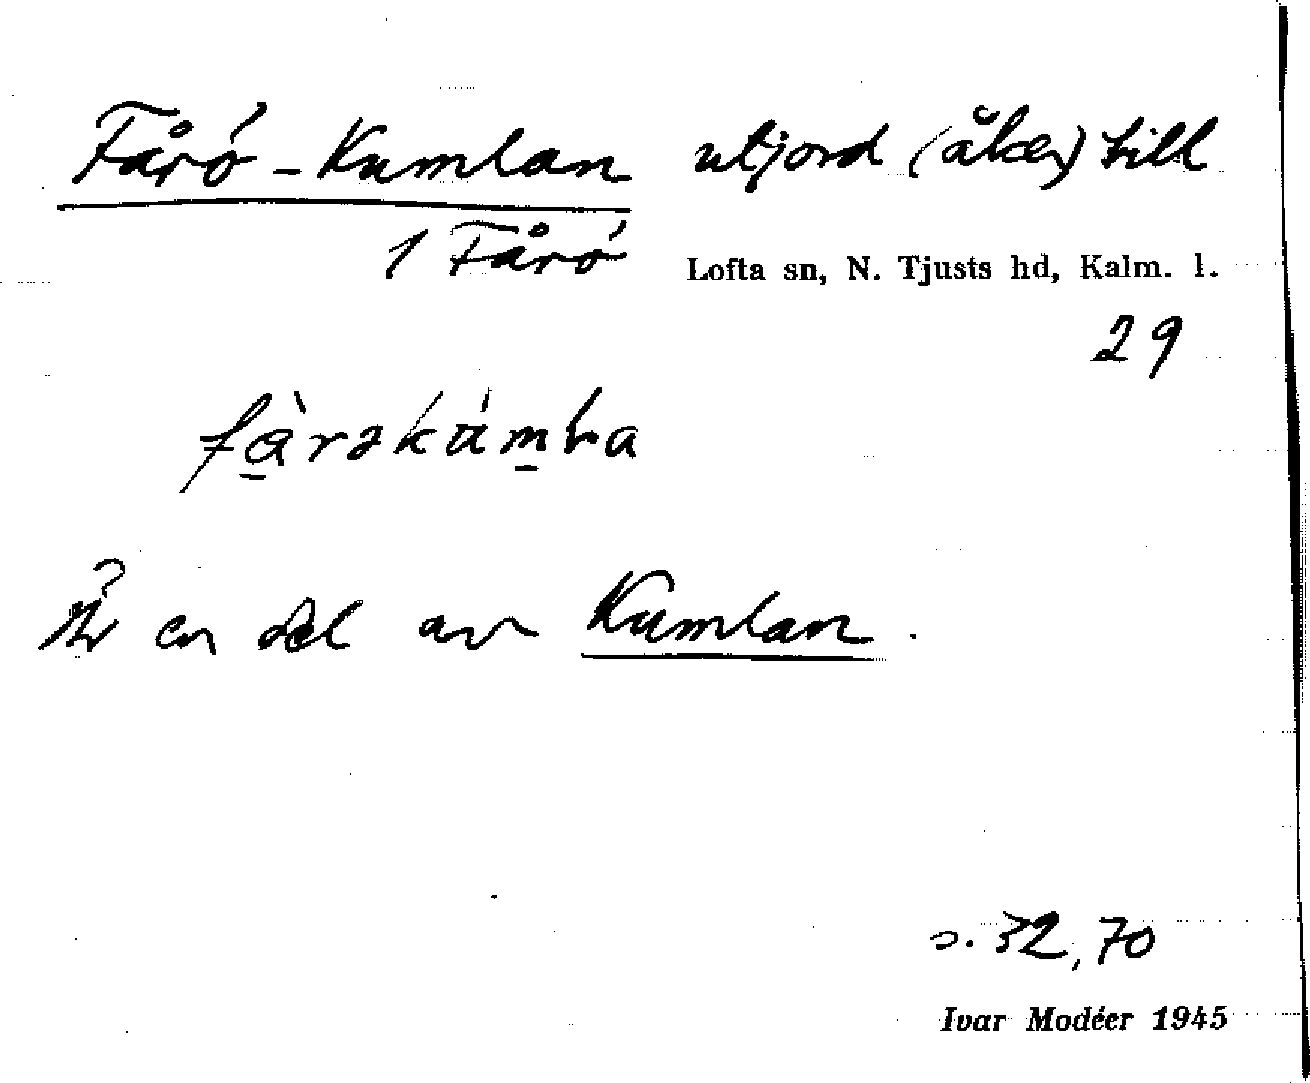 Fårö-Kumlan utjord (åker) till
1 Fårö Lofta sn, N. Tjusts hd, Kalm. l.
29
Är en del av Kumlan.
s. 32, 70
Ivar Modéer 1945